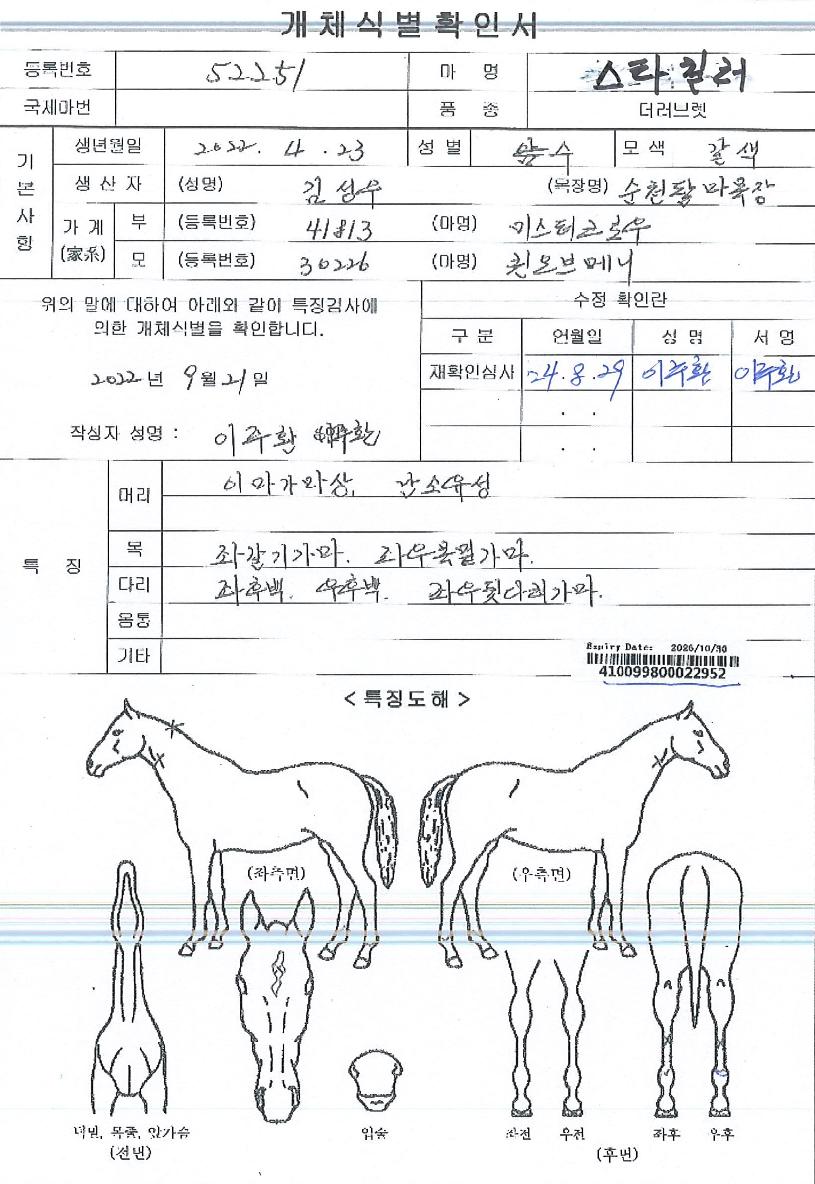 개체식별확인서
등록번호 52251 마 명 스타킬러
국제마번 품 종 더러브렛
기본사항
생년월일 2022. 4 . 23 성 별 암수 모 색 갈색
생 산 자 (성명) 김성우 (목장명) 순천팔마목장
가 계 (家系) 부 (등록번호) 41813 (마명) 미스터크로우
모 (등록번호) 30226 (마명) 퀸오브메니
위의 말에 대하여 아래와 같이 특징검사에
의한 개체식별을 확인합니다.
2022 년 9 월 21 일
작성자 성명 : 이주환 이주환
수정 확인란
구 분 연월일 성 명 서 명
재확인심사 24. 8. 29 이주환 이주환
. .
. .
특 징
머리 이마가마상, 난소유성
목 좌갈기가마. 좌우목밑가마.
다리 좌후백. 우후백. 좌우뒷다리가마.
몸통
기타
Expiry Date: 2026/10/30
410099800022952
<특징도해>
(좌측면) (우측면)
턱밑, 목줄, 앞가슴 입술 좌전 우전 좌후 우후
(전면) (후면)